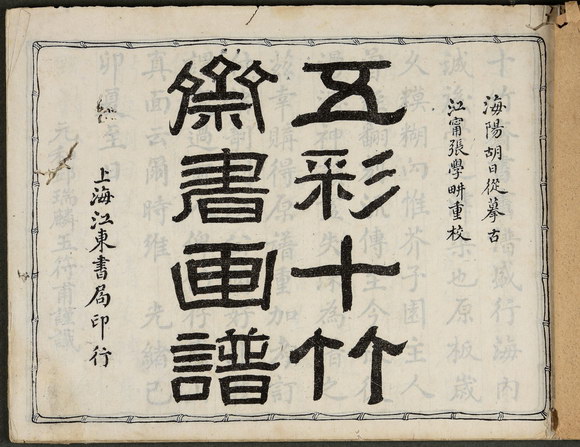 海陽胡曰從摹古
江甯張學畊重校
五彩十竹
齋書画譜
上海江東書局印行